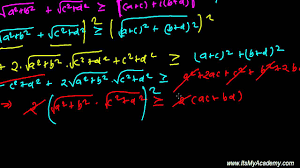 √a²+b² + √c²+d² ≥ √(a+c)²+(b+d)²
(√a²+b² + √c²+d²)² ≥ (√(a+c)²+(b+d)²)²
+ 2·√a²+b²·√c²+d² ≥ (a+c)²+(b+d)²
+c²+d² + 2√a²+b²·√c²+d² ≥ a²+2ac+c²+b²+2b
⇒ 2(√a²+b²·√c²+d²)² ≥ 2(ac+bd)
www.ItsMyAcademy.com